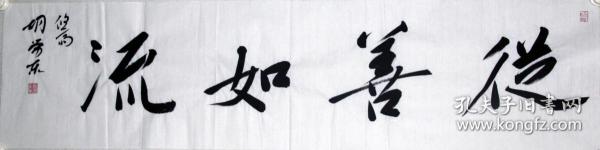 從善如流
孔夫子旧书网
www.kongfz.com